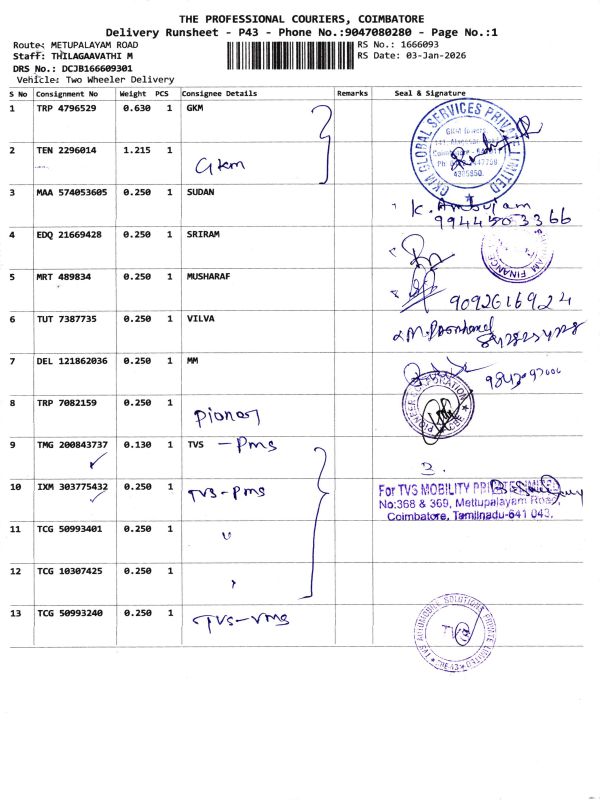 THE PROFESSIONAL COURIERS, COIMBATORE
Delivery Runsheet - P43 - Phone No.:9047080280 - Page No.:1
Route: METUPALAYAM ROAD
RS No.: 1666093
Staff: THILAGAAVATHI M
RS Date: 03-Jan-2026
DRS No.: DCJB166609301
Vehicle: Two Wheeler Delivery
S No Consignment No Weight PCS Consignee Details Remarks Seal & Signature
1 TRP 4796529 0.630 1 GKM
GKM GLOBAL SERVICES PRIVATE LIMITED
2 TEN 2296014 1.215 1
Gkm
3 MAA 574053605 0.250 1 SUDAN
K. Ambujam
4 EDQ 21669428 0.250 1 SRIRAM
FINANCE
5 MRT 489834 0.250 1 MUSHARAF
9092616924
6 TUT 7387735 0.250 1 VILVA
7 DEL 121862036 0.250 1 MM
8 TRP 7082159 0.250 1
Pioneer
PIONEER
9 TMG 200843737 0.130 1 TVS - Pms
10 IXM 303775432 0.250 1 TVS-Pms
For TVS MOBILITY PRIVATE LIMITED
No:368 & 369, Mettupalayam Road,
Coimbatore, Tamilnadu-641 043.
11 TCG 50993401 0.250 1 "
12 TCG 10307425 0.250 1
13 TCG 50993240 0.250 1 TVS-VMS
TVS AUTOMOBILE SOLUTIONS PRIVATE LIMITED